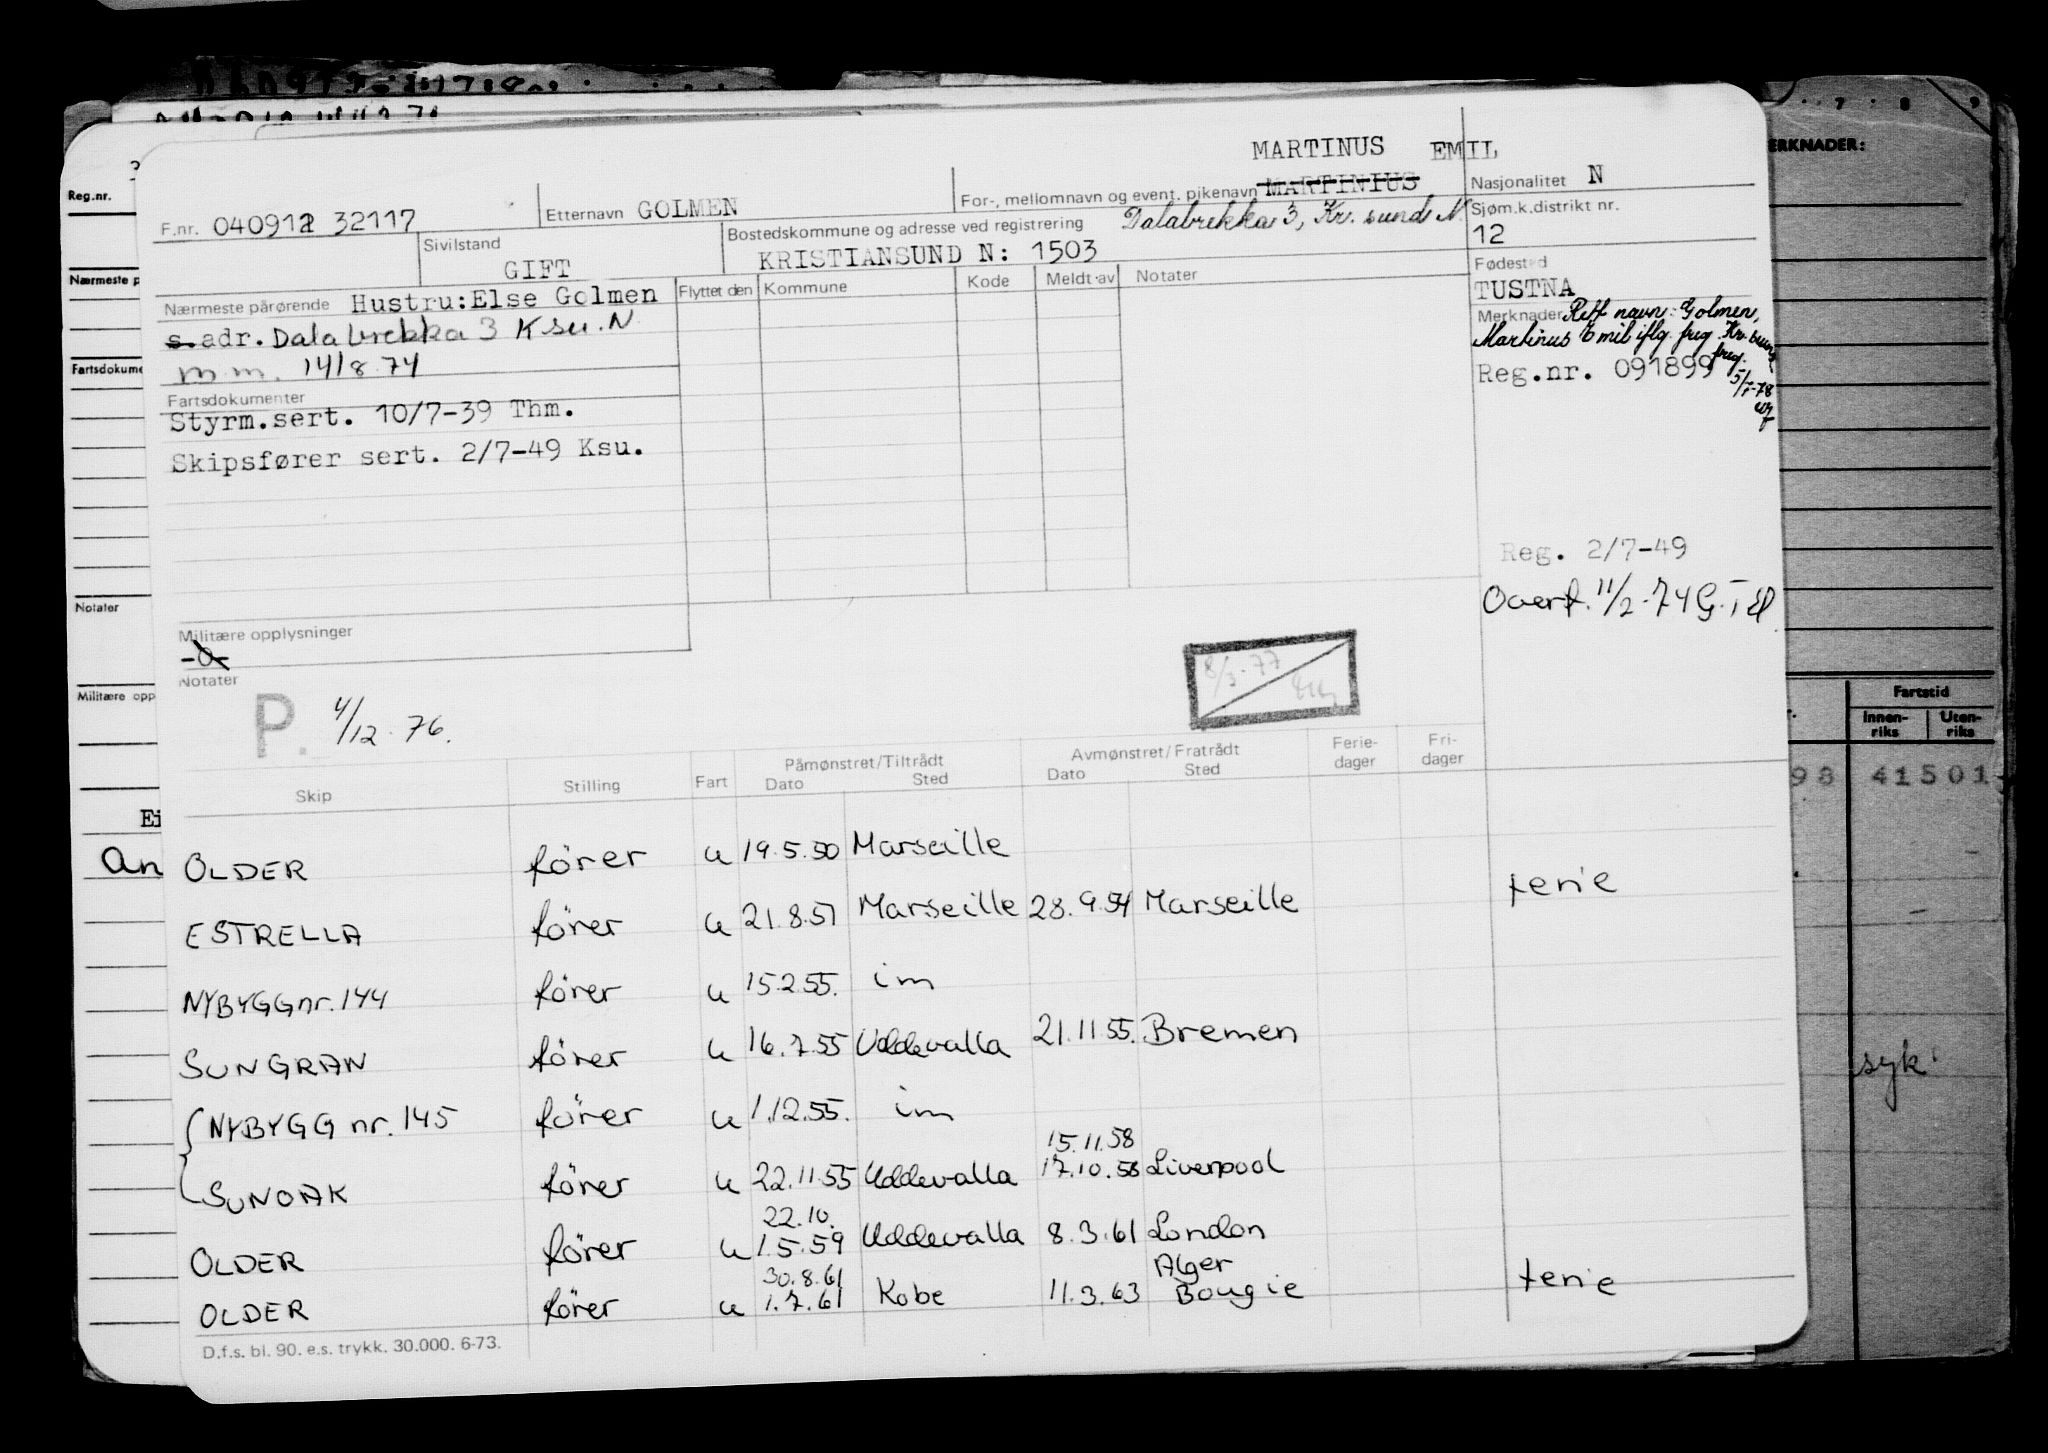 MARTINUS EMIL
F.nr. 040912 32117
Etternavn GOLMEN
For-, mellomnavn og event. pikenavn MARTINIUS
Nasjonalitet N
Sivilstand
GIFT
Bostedskommune og adresse ved registrering Dalabrekka 3, Kr. sund N.
KRISTIANSUND N: 1503
Sjøm.k.distrikt nr.
12
Nærmeste pårørende Hustru: Else Golmen
s.adr. Dalabrekka 3 Ksu. N
m.m. 14/8 74
Flyttet den Kommune Kode Meldt av Notater
Fødested
TUSTNA
Merknader Rett navn: Golmen,
Martinus Emil iflg. freg. Kr.sund
freg.
5/1-78
Reg.nr. 091899
Fartsdokumenter
Styrm.sert. 10/7-39 Thm.
Skipsfører sert. 2/7-49 Ksu.
Reg. 2/7-49
Overf. 11/2-74 G.T.
Militære opplysninger
-0-
Notater
P. 4/12-76.
8/3-77
Skip Stilling Fart Påmønstret/Tiltrådt Dato Sted Avmønstret/Fratrådt Dato Sted Ferie-dager Fri-dager
OLDER fører u 19.5.50 Marseille
ESTRELLA fører u 21.8.51 Marseille 28.9.54 Marseille ferie
NYBYGG nr. 144 fører u 15.2.55. im
SUNGRAN fører u 16.7.55 Uddevalla 21.11.55. Bremen
NYBYGG nr. 145 fører u 1.12.55. im
15.11.58
SUNOAK fører u 22.11.55 Uddevalla 17.10.58 Liverpool
22.10.
OLDER fører u 1.5.59 Uddevalla 8.3.61 London
30.8.61 Alger
OLDER fører u 1.7.61 Kobe 11.3.63 Bougie ferie
D.f.s. bl. 90. e.s. trykk. 30.000. 6-73.
Reg.nr.
Nærmeste p
Fartsdokume
Notater
Militære opp
Ei
an
7 8 9
ERKNADER:
Fartstid
Innen-riks Uten-riks
98 41501
syk